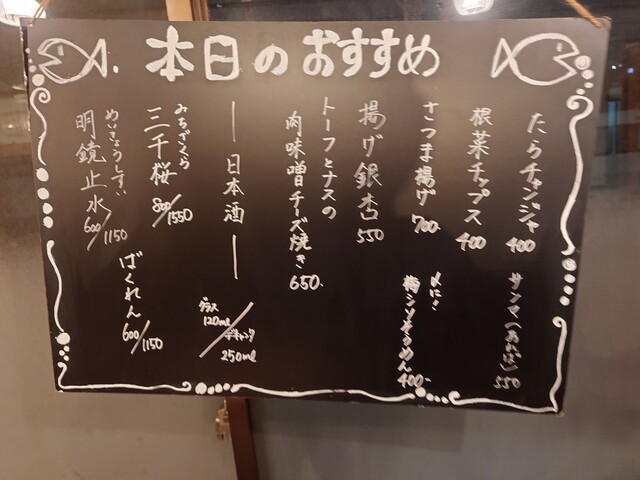 本日のおすすめ
たらチャンジャ 400
サンマ(あぶり) 550
根菜チップス 400
さつま揚げ 700.
〆に!
梅シソそうめん 400.
揚げ銀杏 550
トーフとナスの
肉味噌チーズ焼き 650.
— 日本酒 —
グラス
120ml
デキャンタ
250ml
みちざくら
三千桜 800/1550
ばくれん 600/1150
めいきょうしすい
明鏡止水 600/1150